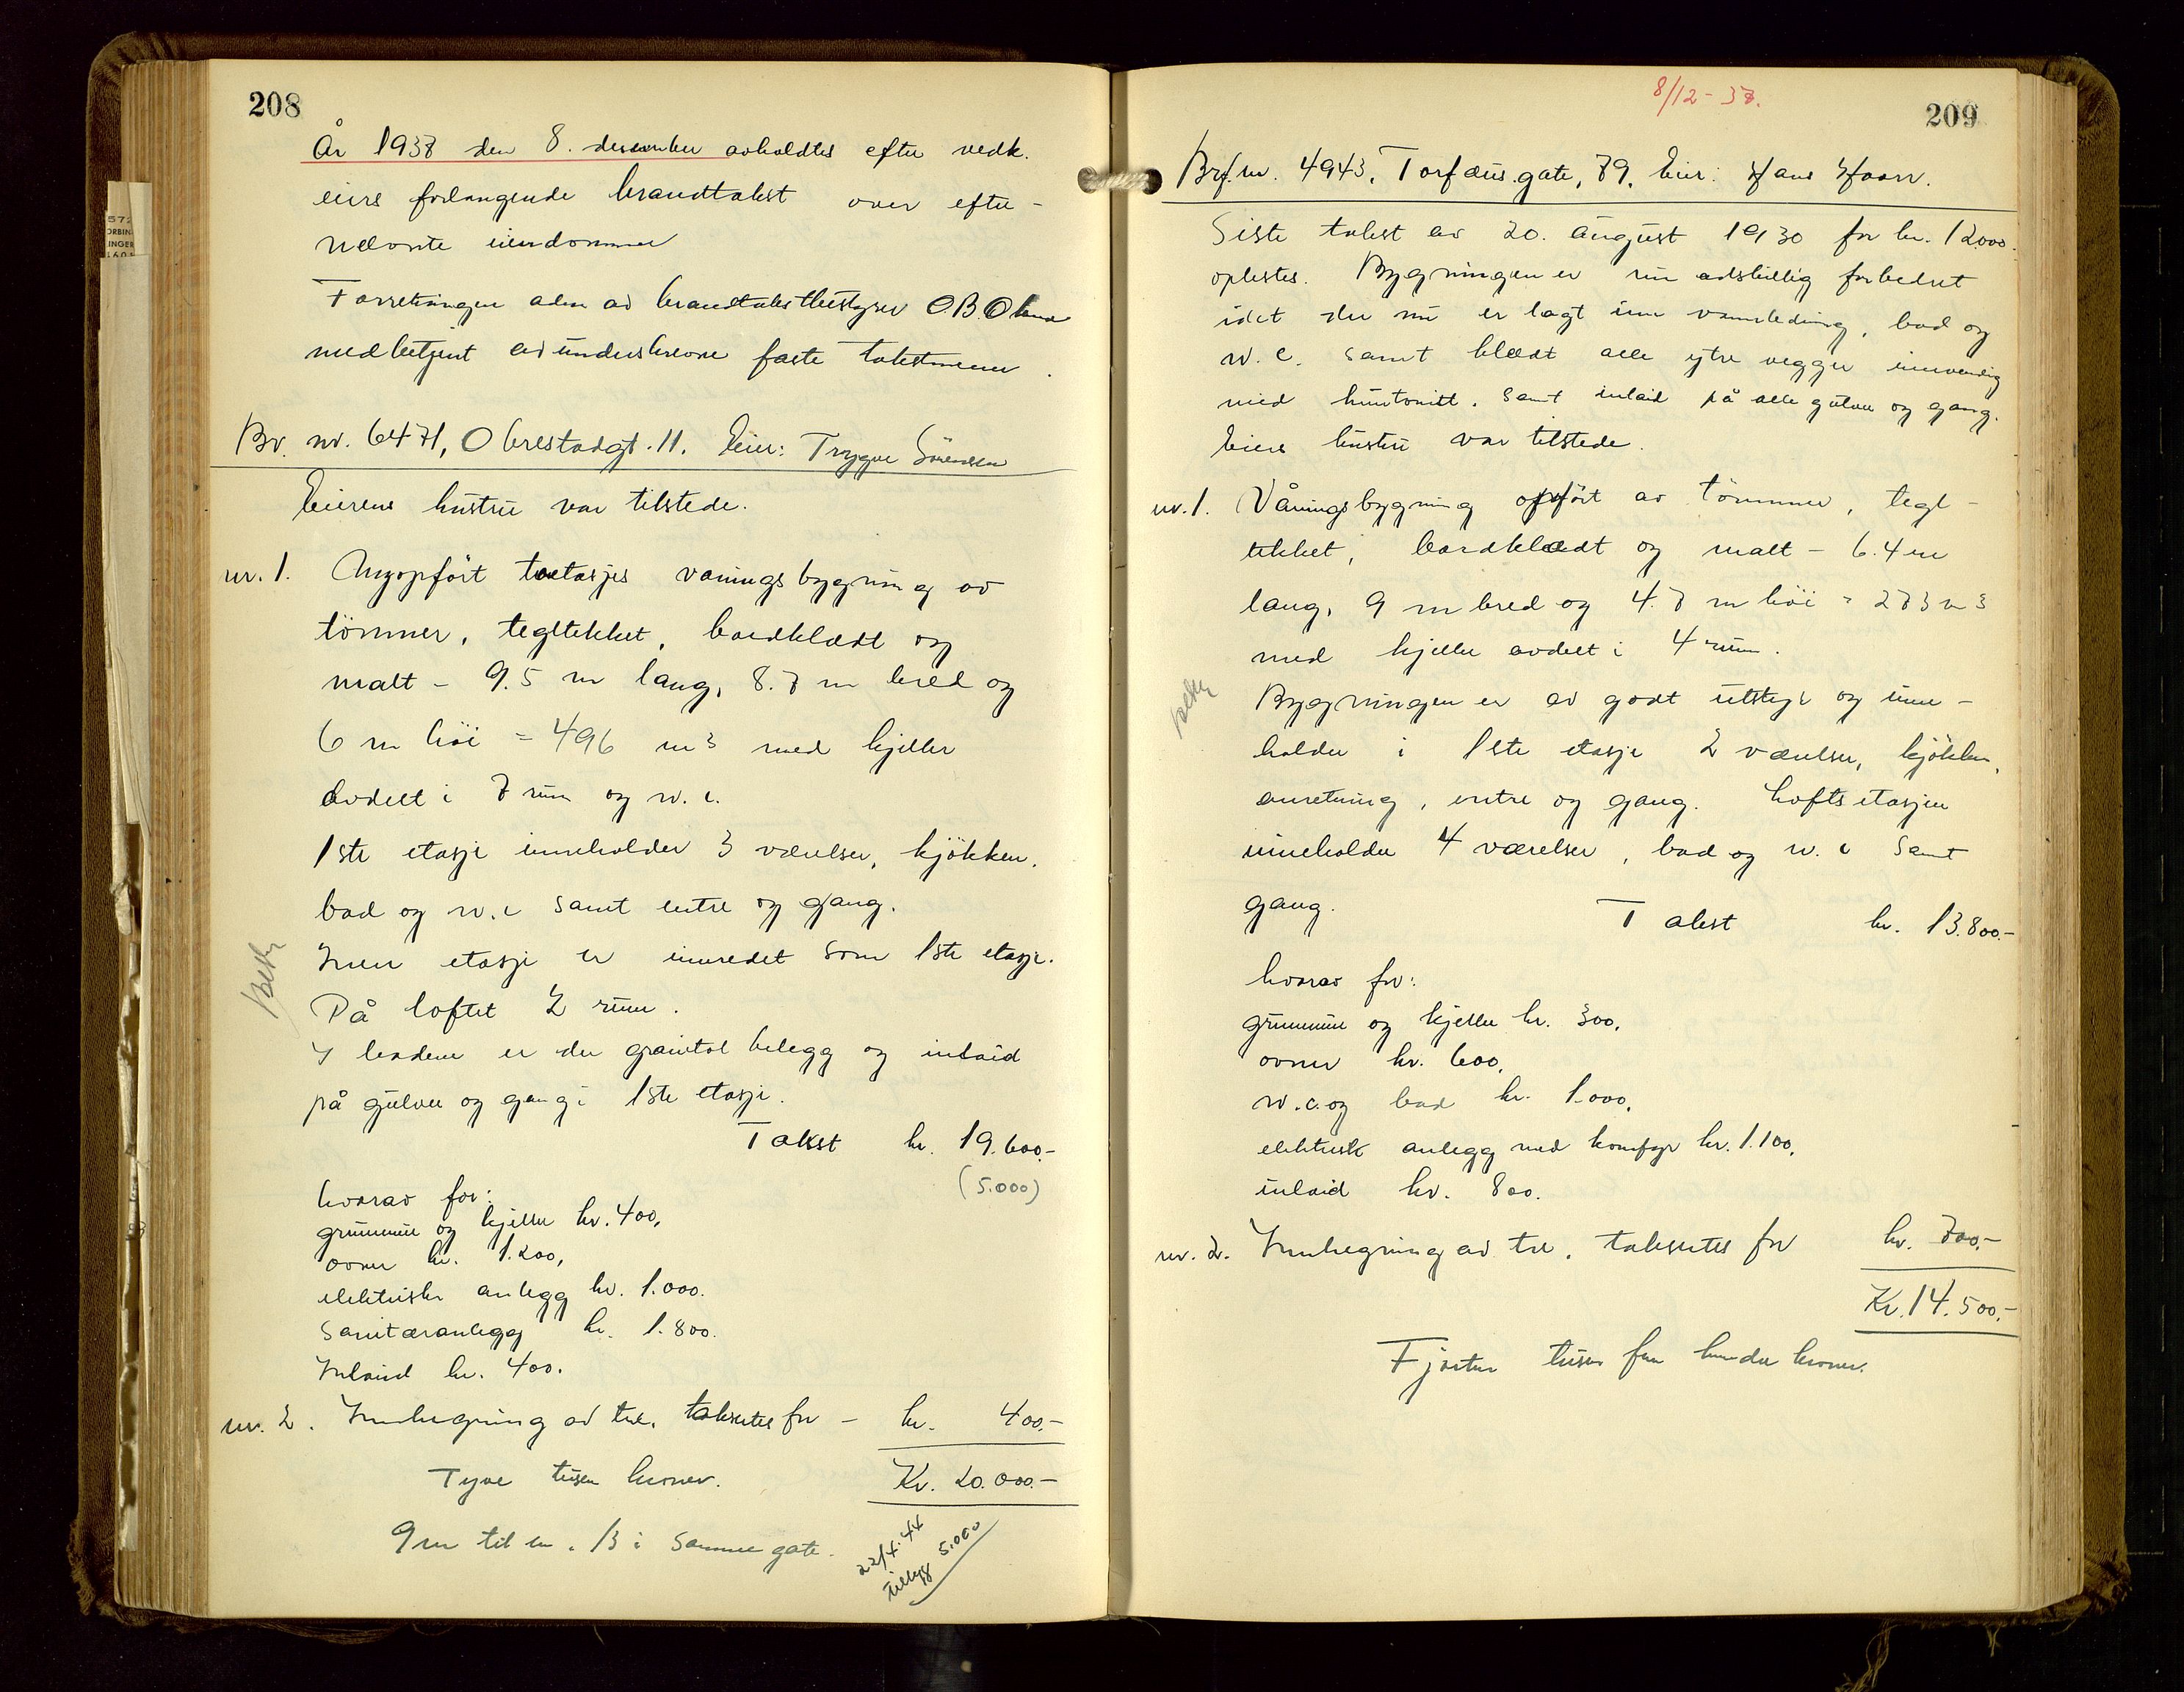 208
År 1938 den 8. desember avholdtes efter vedk.
eiers forlangende brandtakst over efter-
nævnte eiendommer
Forretningen adm av brandtakstbestyrer O.B.
medbetjent av underskrevne faste takstmenn.
Br. nr. 6471, Obrestadgt. 11. Eier: Trygve Sörensen
Eierens hustru var tilstede.
nr. 1. Nyopfört toetasjes våningsbygning av
tömmer, tegltekket, bordklædt og
malt - 9.5 m lang, 8.7 m bred og
6 m höi = 496 m3 med kjeller
avdelt i 7 rum og w.c.
1ste etasje inneholder 3 værelser, kjökken,
bad og w.c samt entre og gang.
Annen etasje er innredet som 1ste etasje.
På loftet 2 rum.
I badene er der granitol belegg og inlaid
på gulver og gang i 1ste etasje.
Takst kr. 19.600.-
(5.000)
hvorav for:
grunnmur og kjeller kr. 400,
ovner kr. 1.200,
elektriske anlegg kr. 1.000.
Sanitæranlegg kr. 1.800.
Inlaid kr. 400.
nr. 2. Innhegning av tre, takseres for - kr. 400.-
Tyve tusen kroner. Kr. 20.000.-
9 m til nr. 13 i samme gate.
22/4.44
tillegg 5.000
8/12-38.
209
Brf. nr. 4943, Torfæus gate, 79, Eier: Hans Haarr.
Siste takst av 20. august 1930 for kr. 12.000.
oplestes. Bygningen er nu adskillig forbedret
idet der nu er lagt inn vannledning, bad og
w.c. samt klædt alle ytre vegger innvendig
med huntonitt. Samt inlaid på alle gulver og gang.
Eiers hustru var tilstede.
nr. 1. Våningsbygning opfört av tömmer, tegl-
tekket, bordklædt og malt - 6.4 m
lang, 9 m bred og 4.7 m höi = 273 m3
med kjeller avdelt i 4 rum.
Bygningen er av godt utstyr og inne-
holder i 1ste etasje 2 værelser, kjökken,
anretning, entre og gang. Loftsetasjen
inneholder 4 værelser, bad og w.c samt
gang. Takst kr. 13.800.-
hvorav for:
grunnmur og kjeller kr. 300,
ovner kr. 600,
w.c. og bad kr. 1.000,
elektrisk anlegg med komfyr kr. 1.100,
inlaid kr. 800.
nr. 2. Innhegning av tre, takseres for kr. 700.-
Kr. 14.500.-
Fjorten tusen fem hundre kroner.